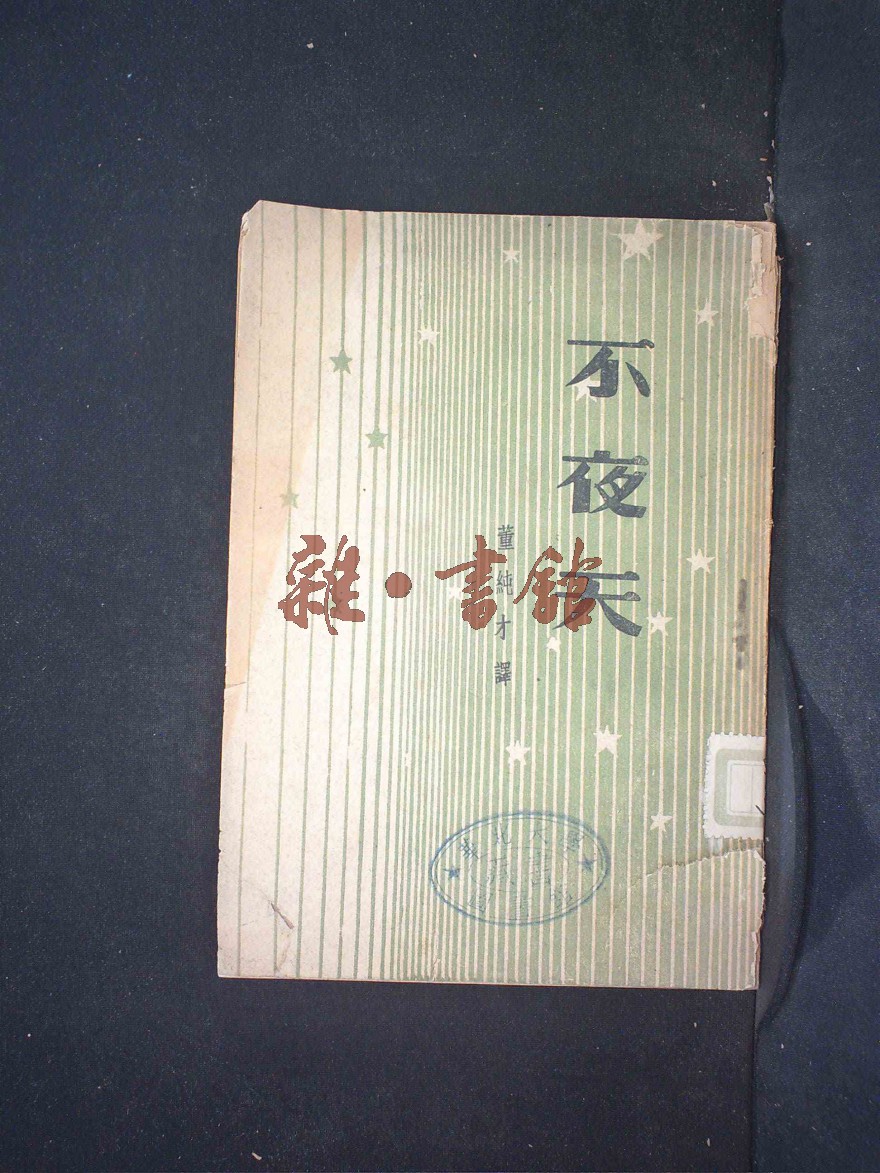 不夜天
董純才譯
雜·書館